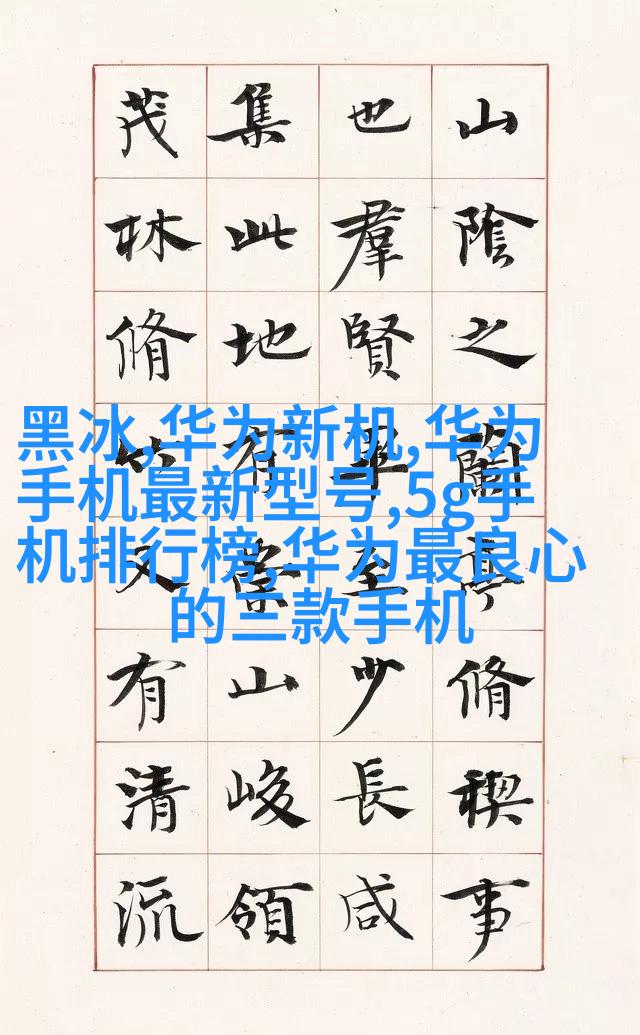 山陰之蘭亭脩稧事
也羣賢畢至少長咸
集此地有崇山峻領
茂林脩竹又有清流
黑冰,华为新机,华为
手机最新型号,5g手
机排行榜,华为最良心
的三款手机